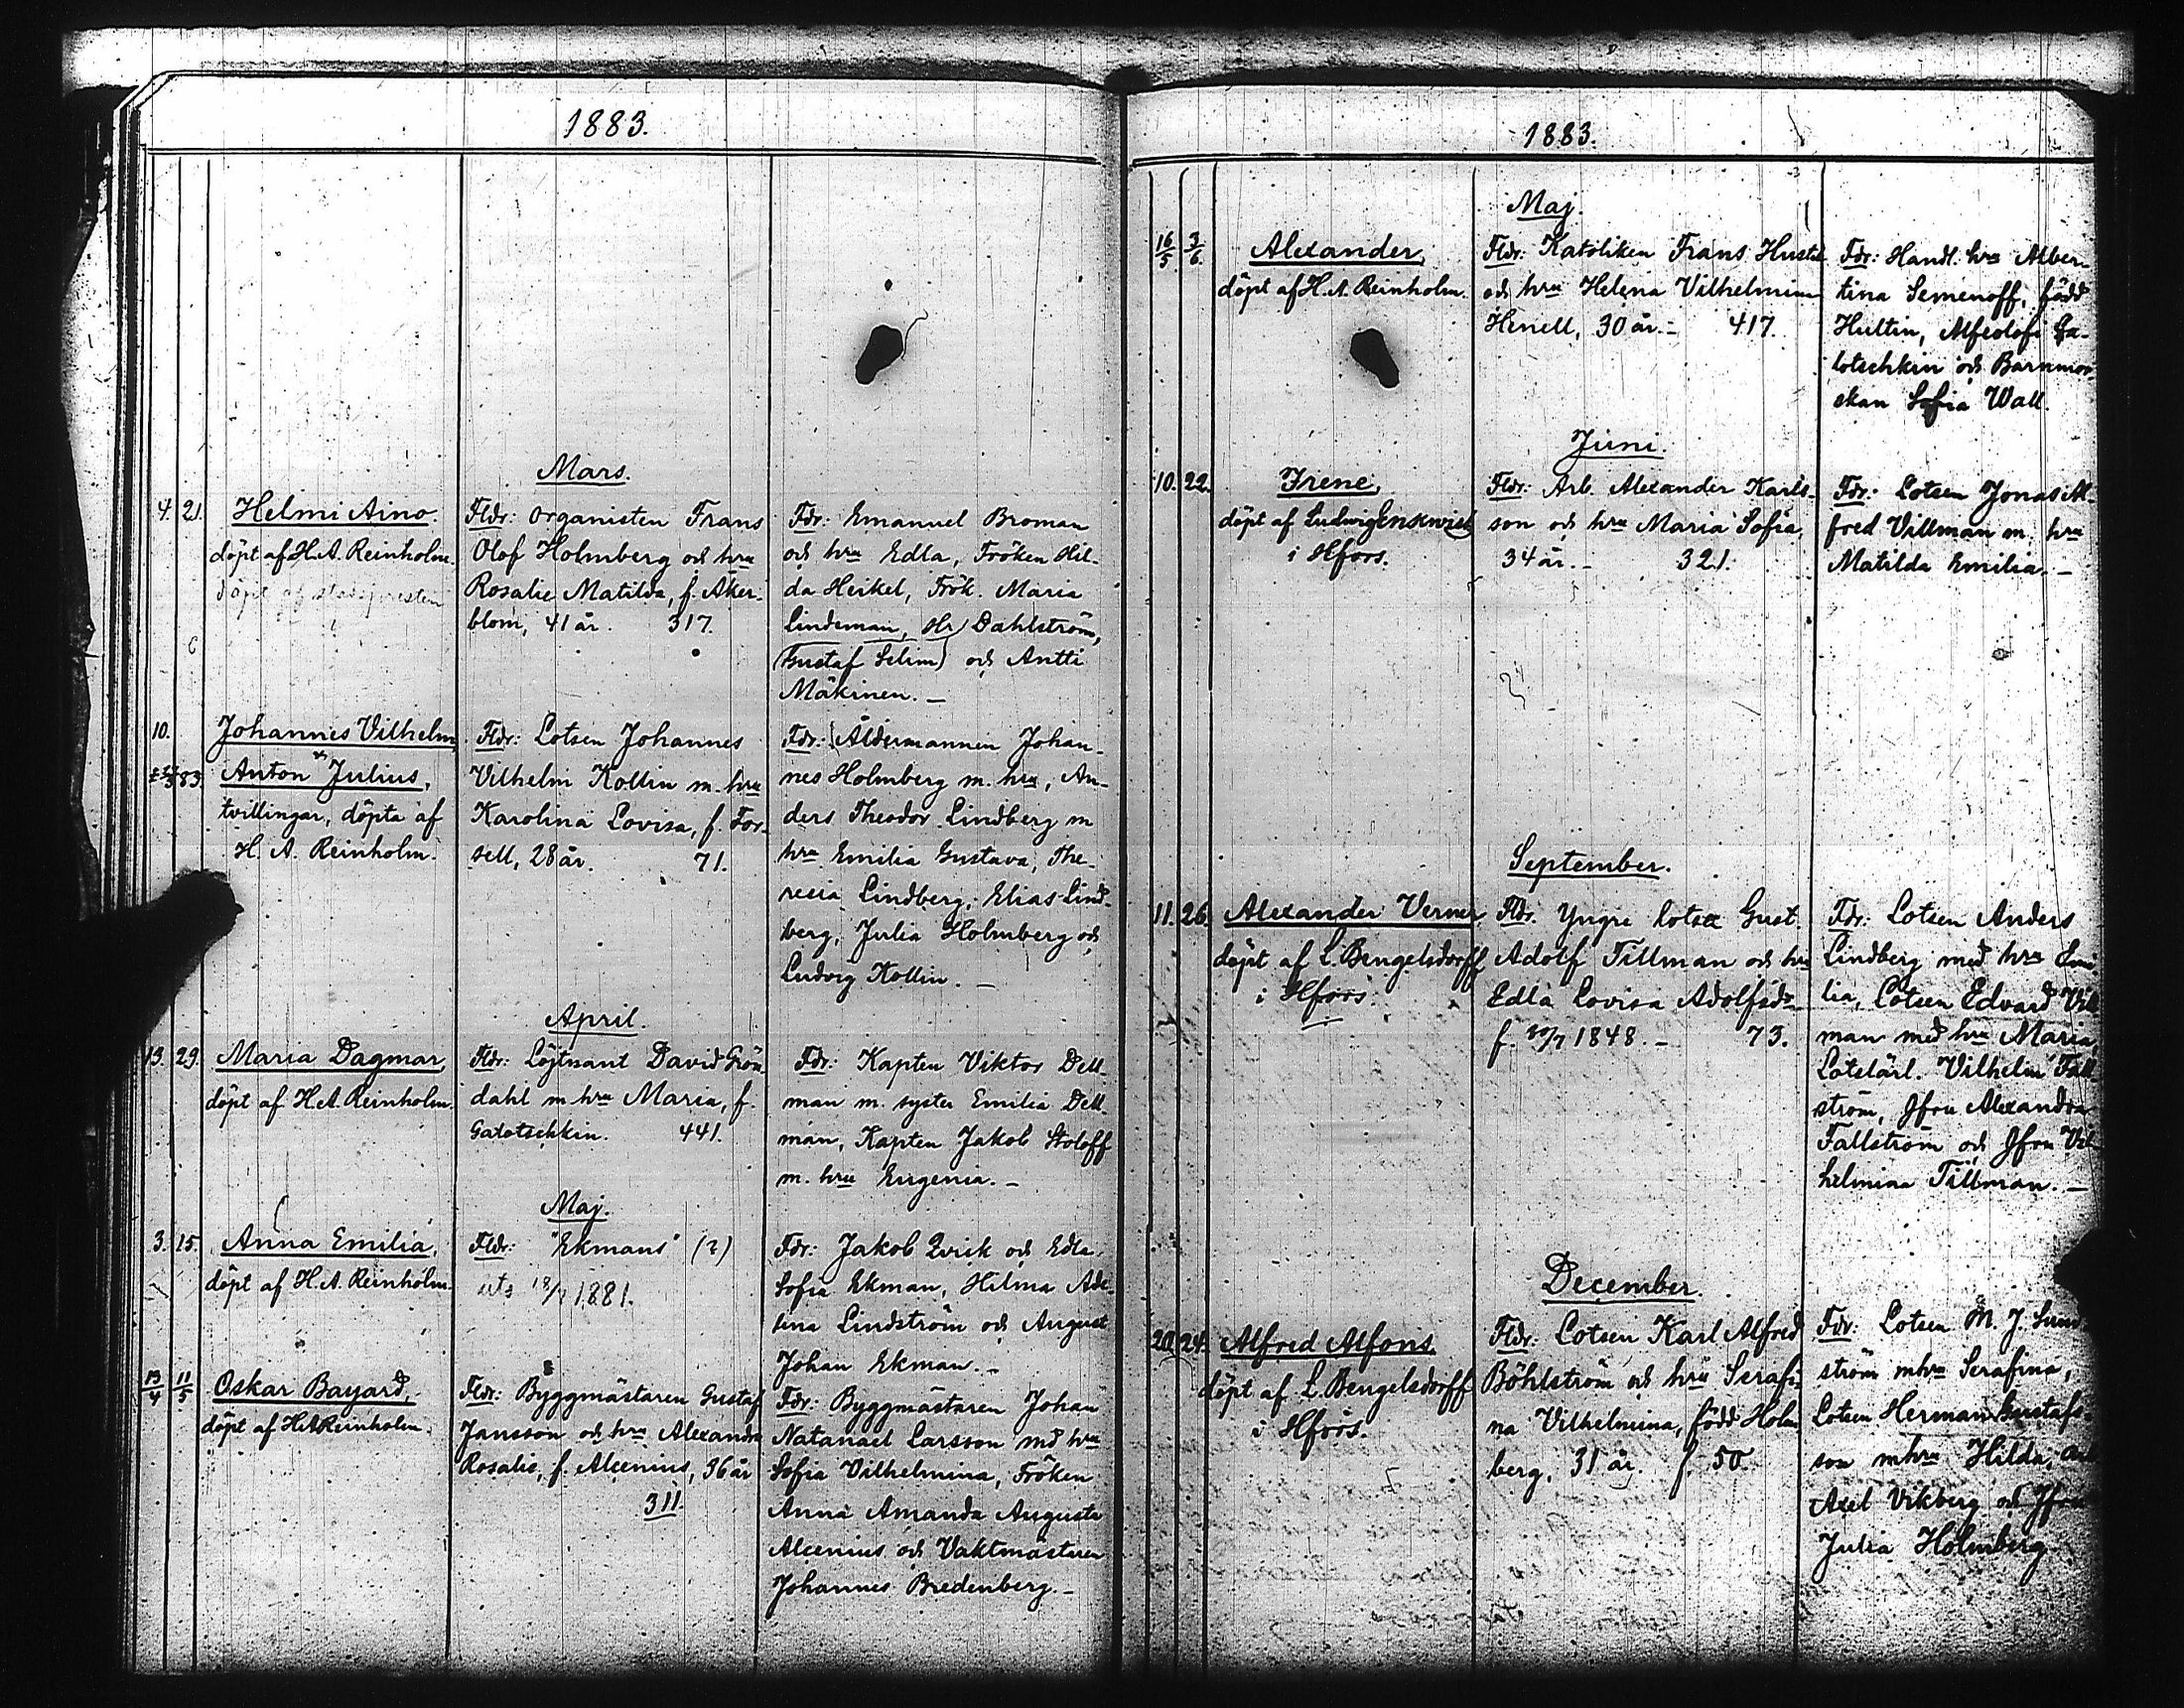 1883.
Mars.
4. 21. Helmi Aino.
döpt af H. A. Reinholm.
döpt af stadspresten
Fldr: Organisten Frans
Olof Holmberg och hru
Rosalie Matilda, f. Åker-
blom, 41 år. 317.
Fdr: Emanuel Broman
och hru Edla, Fröken Hil-
da Heikel, Frök. Maria
Lindeman, Hr Dahlström,
(Gustaf Selim) och Antti
Mäkinen. —
10. Johannes Vilhelm,
83. Anton Julius,
tvillingar, döpta af
H. A. Reinholm.
Fldr: Lotsen Johannes
Vilhelm Kollin m. hru
Karolina Lovisa, f. For-
sell, 28 år. 71.
Fdr: Åldermannen Johan-
nes Holmberg m. hru, An-
ders Theodor Lindberg m
hru Emilia Gustava, The-
resia Lindberg, Elias Lind-
berg, Julia Holmberg och
Ludvig Kollin. —
April.
13. 29. Maria Dagmar,
döpt af H. A. Reinholm.
Fldr: Löjtnant David Grön-
dahl m hru Maria, f.
Galotschkin. 441.
Fdr: Kapten Viktor Dell-
man m. syster Emilia Dell-
man, Kapten Jakob Stoloff
m. hru Eugenia. —
Maj.
3. 15. Anna Emilia,
döpt af H. A. Reinholm.
Fldr: "Ekmans" (?)
1881.
Fdr: Jakob Qvick och Edla
Sofia Ekman, Hilma Ade-
lina Lindström och August
Johan Ekman. —
13/4 11/5 Oskar Bayard,
döpt af H A Reinholm.
Fldr: Byggmästaren Gustaf
Jansson och hru Alexandra
Rosalie, f. Alcenius, 36 år
311.
Fdr: Byggmästaren Johan
Natanael Larsson md hru
Sofia Vilhelmina, Fröken
Anna Amanda Augusta
Alcenius och Vaktmästaren
Johannes Bredenberg. —
1883.
Maj.
16/5. 3/6. Alexander,
döpt af H. A. Reinholm.
Fldr: Katoliken Frans
och hru Helena Vilhelmina
Henell, 30 år. — 417.
Fdr: Handl. hru Alber-
tina Semenoff, född
Hultin, Ga-
lotschkin och Barnmor-
skan Sofia Wall.
Juni.
10. 22. Irene,
döpt af Ludvig Enqvist
i Hfors.
Fldr: Arb. Alexander Karls-
son och hru Maria Sofia,
34 år. — 321.
Fdr: Lotsen Jonas Al-
fred Villman m. hru
Matilda Emilia. —
September.
11. 26. Alexander Verner
döpt af L. Bengelsdorff
i Hfors.
Fldr. Yngre Lotsen Gust.
Adolf Tillman och hru
Edla Lovisa Adolfsdr
f. 1848. — 73.
Fdr: Lotsen Anders
Lindberg med hru Emi
lia, Lotsen Edvard Vill
man med hru Maria
Lotslärl. Vilhelm Fall-
ström, Jfru Alexandra
Fallström och Jfru Vil
helmina Tillman. —
December.
20. 24. Alfred Alfons.
döpt af L. Bengelsdorff
i Hfors.
Fldr: Lotsen Karl Alfred
Böhlström och hru Serafi-
na Vilhelmina, född Holm
berg, 31 år. f. 50.
Fdr: Lotsen M. J. Sund
ström m hru Serafina,
Lotsen Herman Gustafs-
son m hru Hilda,
Axel Vikberg och Jfru
Julia Holmberg